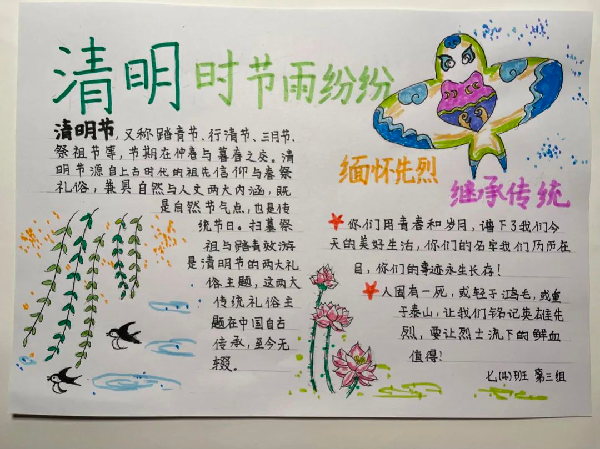 清明时节雨纷纷
清明节，又称踏青节、行清节、三月节、
祭祖节等，节期在仲春与暮春之交。清
明节源自上古时代的祖先信仰与春祭
礼俗，兼具自然与人文两大内涵，既
是自然节气点，也是传
统节日。扫墓祭
祖与踏青郊游
是清明节的两大礼
俗主题，这两大
传统礼俗主
题在中国自古
传承，至今无
辍。
缅怀先烈
继承传统
你们用青春和岁月，谱下了我们今
天的美好生活，你们的名字我们历历在
目，你们的事迹永生长存！
人固有一死，或轻于鸿毛，或重
于泰山，让我们铭记英雄先
烈，要让烈士流下的鲜血
值得！
七(4)班 第三组